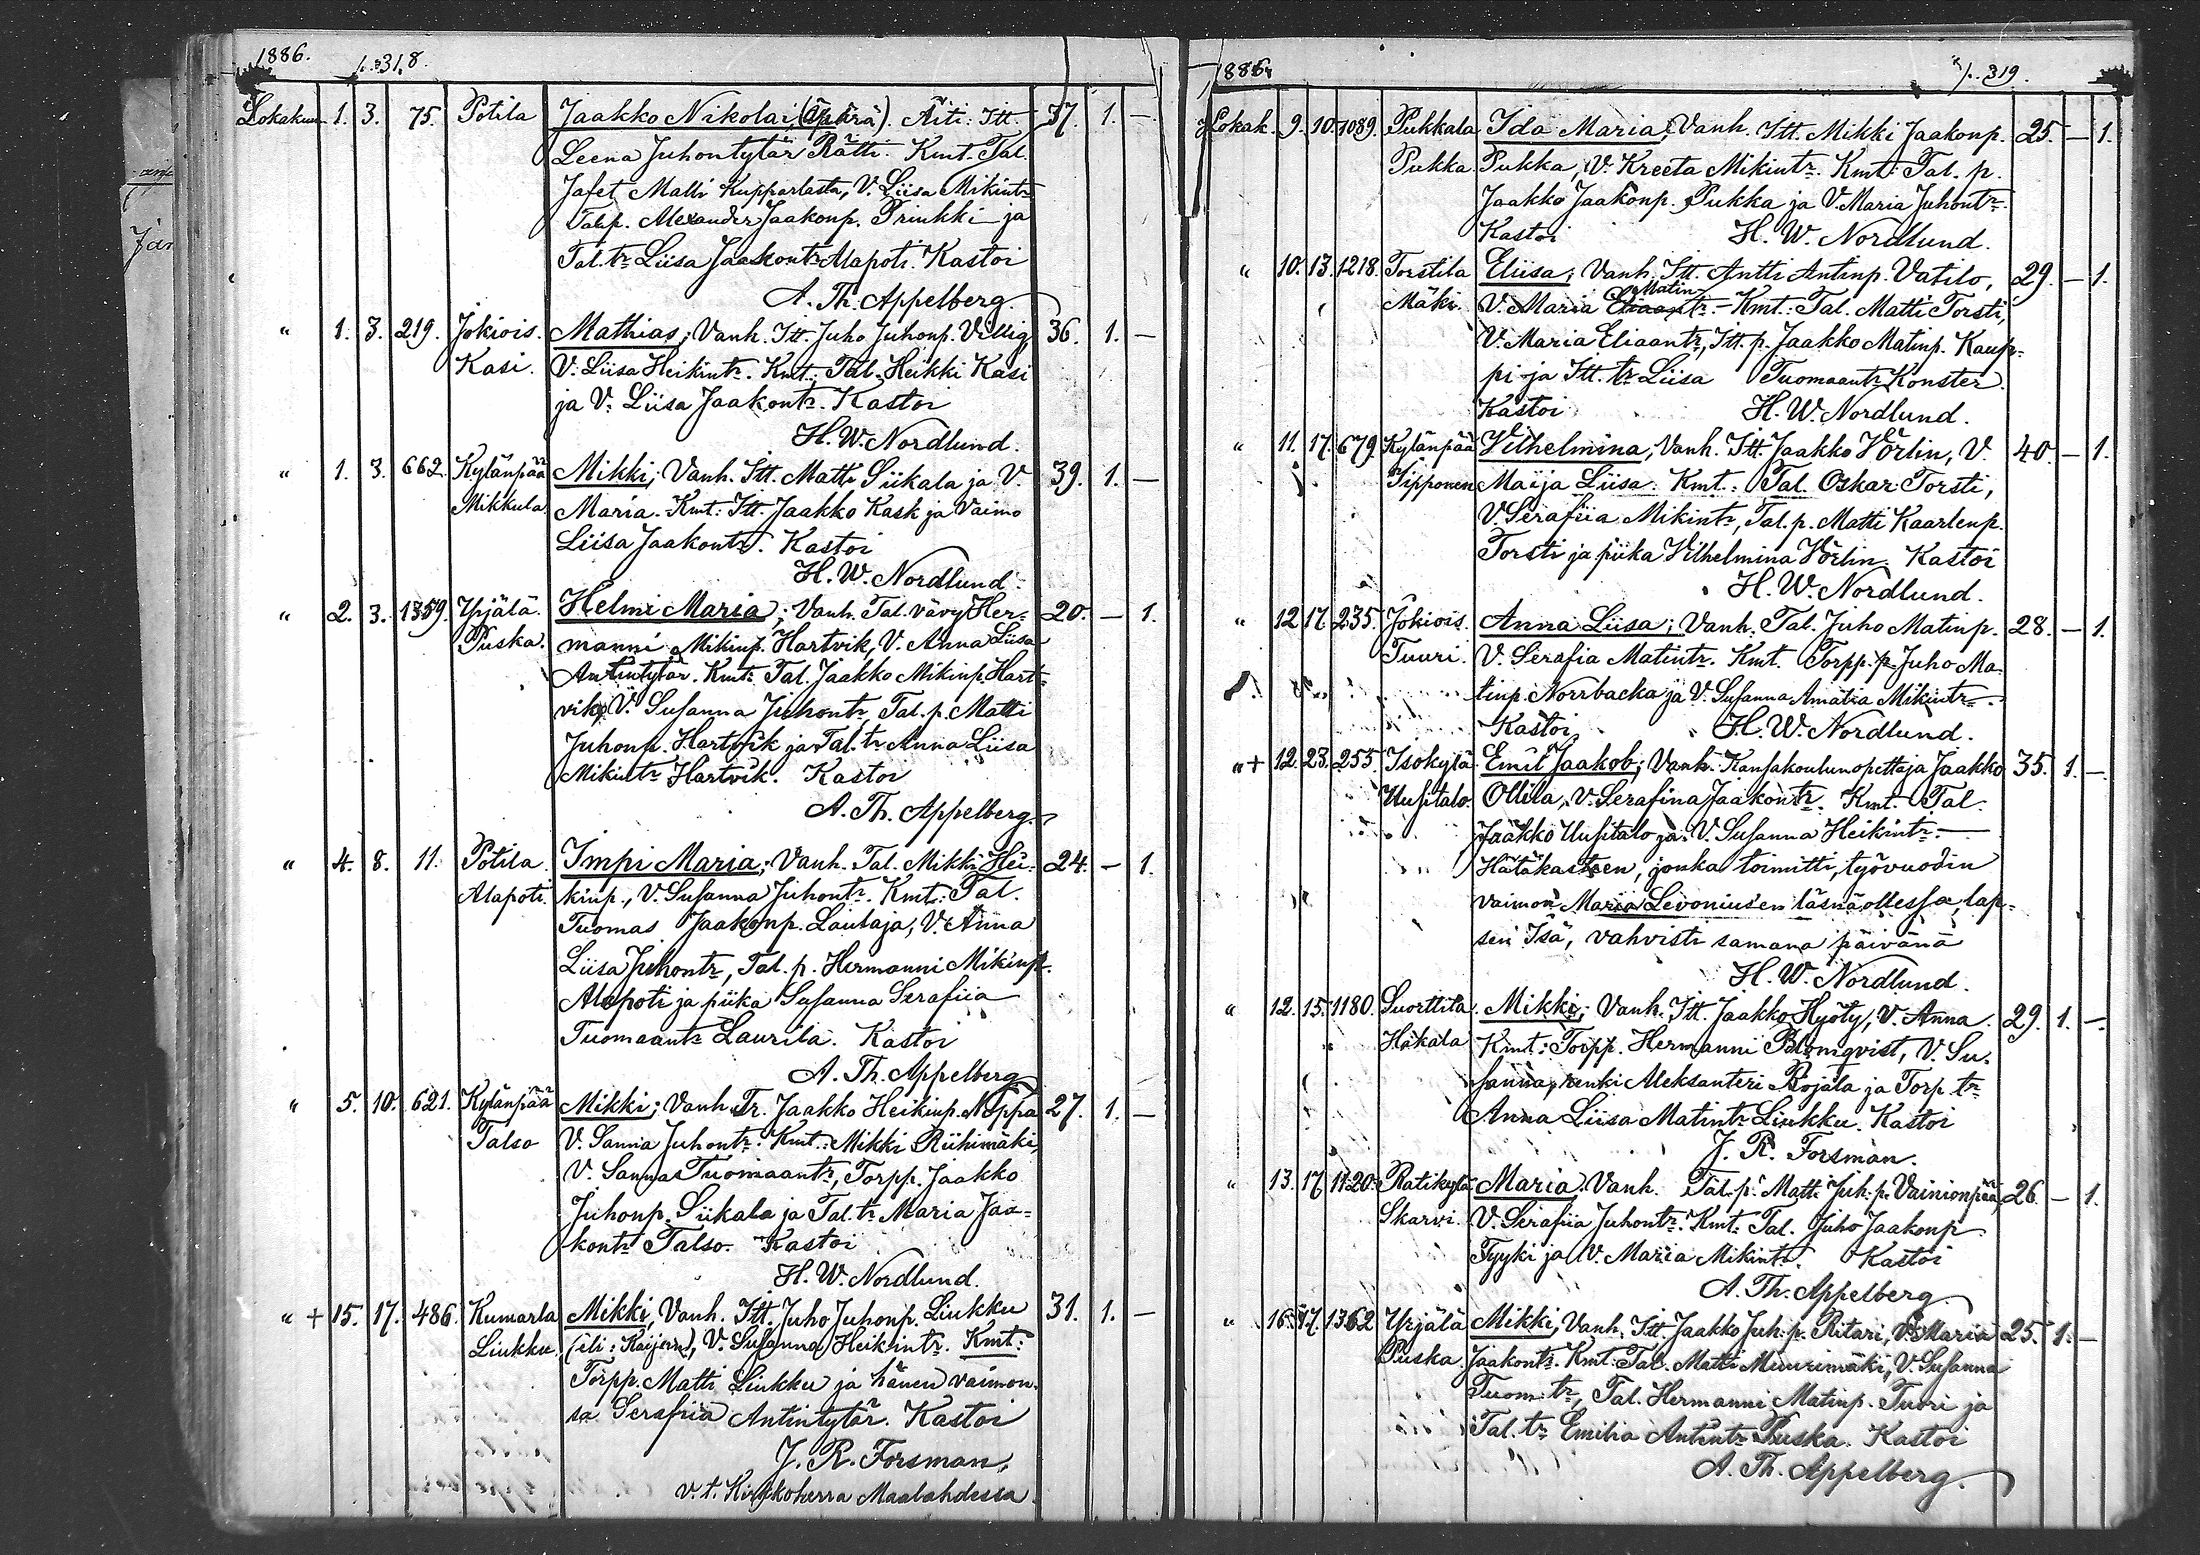 1886.
p. 318.
Lokakuu 1. 3. 75. Potila Jaakko Nikolai, (Äpärä). Äiti: Itt. 37. 1. —
Leena Juhontytär Rätti. Kmt. Tal.
Jafet Matti Kupparlasta, V. Liisa Mikintr
Talp. Alexander Jaakonp. Prinkki ja
Tal. tr Liisa Jaakontr Alapoti. Kastoi
A. Th. Appelberg.
" 1. 3. 219. Jokiois. Mathias; Vanh. Itt. Juho Juhonp. Villig, 36. 1. —
Kasi. V. Liisa Heikintr. Kmt.: Tal. Heikki Kasi
ja V. Liisa Jaakontr. Kastoi
H. W. Nordlund.
" 1. 3. 662. Kylänpää Mikki; Vanh. Itt. Matti Siikala ja V. 39. 1. —
Mikkula Maria. Kmt: Itt. Jaakko Kask ja Vaimo
Liisa Jaakontr. Kastoi
H. W. Nordlund.
" 2. 3. 1359. Yrjälä. Helmi Maria; Vanh. Tal. vävy Her- 20. — 1.
Puska. manni Mikinp. Hartvik, V. Anna Liisa
Antintytär. Kmt: Tal. Jaakko Mikinp. Hart-
vik, V. Susanna Juhontr, Tal. p. Matti
Juhonp. Hartvik ja Tal. tr Anna Liisa
Mikintr Hartvik. Kastoi
A. Th. Appelberg.
" 4. 8. 11. Potila Impi Maria; Vanh. Tal. Mikki Hei- 24. — 1.
Alapoti. kinp., V. Susanna Juhontr. Kmt.: Tal.
Tuomas Jaakonp. Lautaja, V. Anna
Liisa Juhontr, Tal. p. Hermanni Mikinp.
Alapoti ja piika Susanna Serafiia
Tuomaantr Laurila. Kastoi
A. Th. Appelberg
" 5. 10. 621. Kylänpää Mikki; Vanh. Tr. Jaakko Heikinp. Noppa 27. 1. —
Talso V. Sanna Juhontr. Kmt.: Mikki Riihimäki,
V. Sanna Tuomaantr, Torpp. Jaakko
Juhonp. Siikala ja Tal. tr Maria Jaa-
kontr Talso. Kastoi
H. W. Nordlund.
" + 15. 17. 486. Kumarla Mikki, Vanh. Itt. Juho Juhonp. Liukku 31. 1. —
Liukku. (eli: Kaijern), V. Susanna Heikintr. Kmt:
Torpp. Matti Liukku ja hänen vaimon-
sa Serafiia Antintytär. Kastoi
J. R. Forsman,
v. t. Kirkkoherra Maalahdessa.
1886.
p. 319.
Lokak. 9. 10. 1089. Pukkala Ida Maria; Vanh. Itt. Mikki Jaakonp. 25. — 1.
Pukka. Pukka, V. Kreeta Mikintr. Kmt: Tal. p.
Jaakko Jaakonp. Pukka ja V. Maria Juhontr.
Kastoi H. W. Nordlund.
" 10. 13. 1218. Torstila Eliisa; Vanh. Itt. Antti Antinp. Vatilo, 29. — 1.
Mäki. V. Maria Eliaantr Matin - Kmt.: Tal. Matti Torsti,
V. Maria Eliaantr, Itt. p. Jaakko Matinp. Kaup-
pi ja Itt. tr Liisa Tuomaantr Konster.
Kastoi H. W. Nordlund.
" 11. 17. 679 Kylänpää Vilhelmina; Vanh. Itt. Jaakko Vörlin, V. 40. — 1.
Yipponen Maija Liisa. Kmt.: Tal. Oskar Torsti,
V. Serafiia Mikintr, Tal. p. Matti Kaarlenp.
Torsti ja piika Vilhelmina Vörlin. Kastoi
H. W. Nordlund.
" 12 17. 235. Jokiois. Anna Liisa; Vanh. Tal. Juho Matinp. 28. — 1.
Tuuri. V. Serafia Matintr. Kmt. Torpp. p. Juho Ma-
tinp. Norrbacka ja V. Susanna Amalia Mikintr.
Kastoi H. W. Nordlund.
" + 12. 23. 255. Isokylä Emil Jaakob; Vanh: Kansakoulunopettaja Jaakko 35. 1. —
Uusitalo Ollila, V. Serafina Jaakontr. Kmt. Tal.
Jaakko Uusitalo ja V. Susanna Heikintr. —
Hätäkasteen, jonka toimitti, työvuodin
vaimon Maria Levoniusen läsnäollessa, lap-
sen Isä, vahvisti samana päivänä
H. W. Nordlund.
" 12. 15. 1180. Suorttila. Mikki; Vanh. Itt. Jaakko Hyöty, V. Anna. 29. 1. —
Hakala Kmt: Torpp. Hermanni Blomqvist, V. Su-
sanna, renki Aleksanteri Rojala ja Torp. tr
Anna Liisa Matintr Liukku. Kastoi
J. R. Forsman.
" 13. 17. 1120. Ratikylä Maria. Vanh. Tal. p. Matti Juh. p. Vainionpää, 26 — 1.
Skarvi. V. Serafiia Juhontr. Kmt: Tal. Juho Jaakonp.
Tyyki ja V. Maria Mikintr. Kastoi
A. Th. Appelberg.
" 16. 17. 1362 Yrjälä Mikki; Vanh. Itt. Jaakko Juh. p. Ritari, V. Maria 25. 1. —
Puska Jaakontr. Kmt: Tal. Matti Muurimäki, V. Susanna
Tuom. tr, Tal. Hermanni Matinp. Tuuri ja
Tal. tr Emilia Antintr Puska. Kastoi
A. Th. Appelberg.